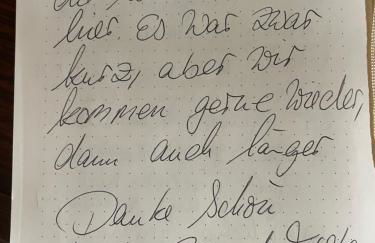 hier. Es war zwar
kurz, aber wir
kommen gerne wieder,
dann auch länger
Danke Schön